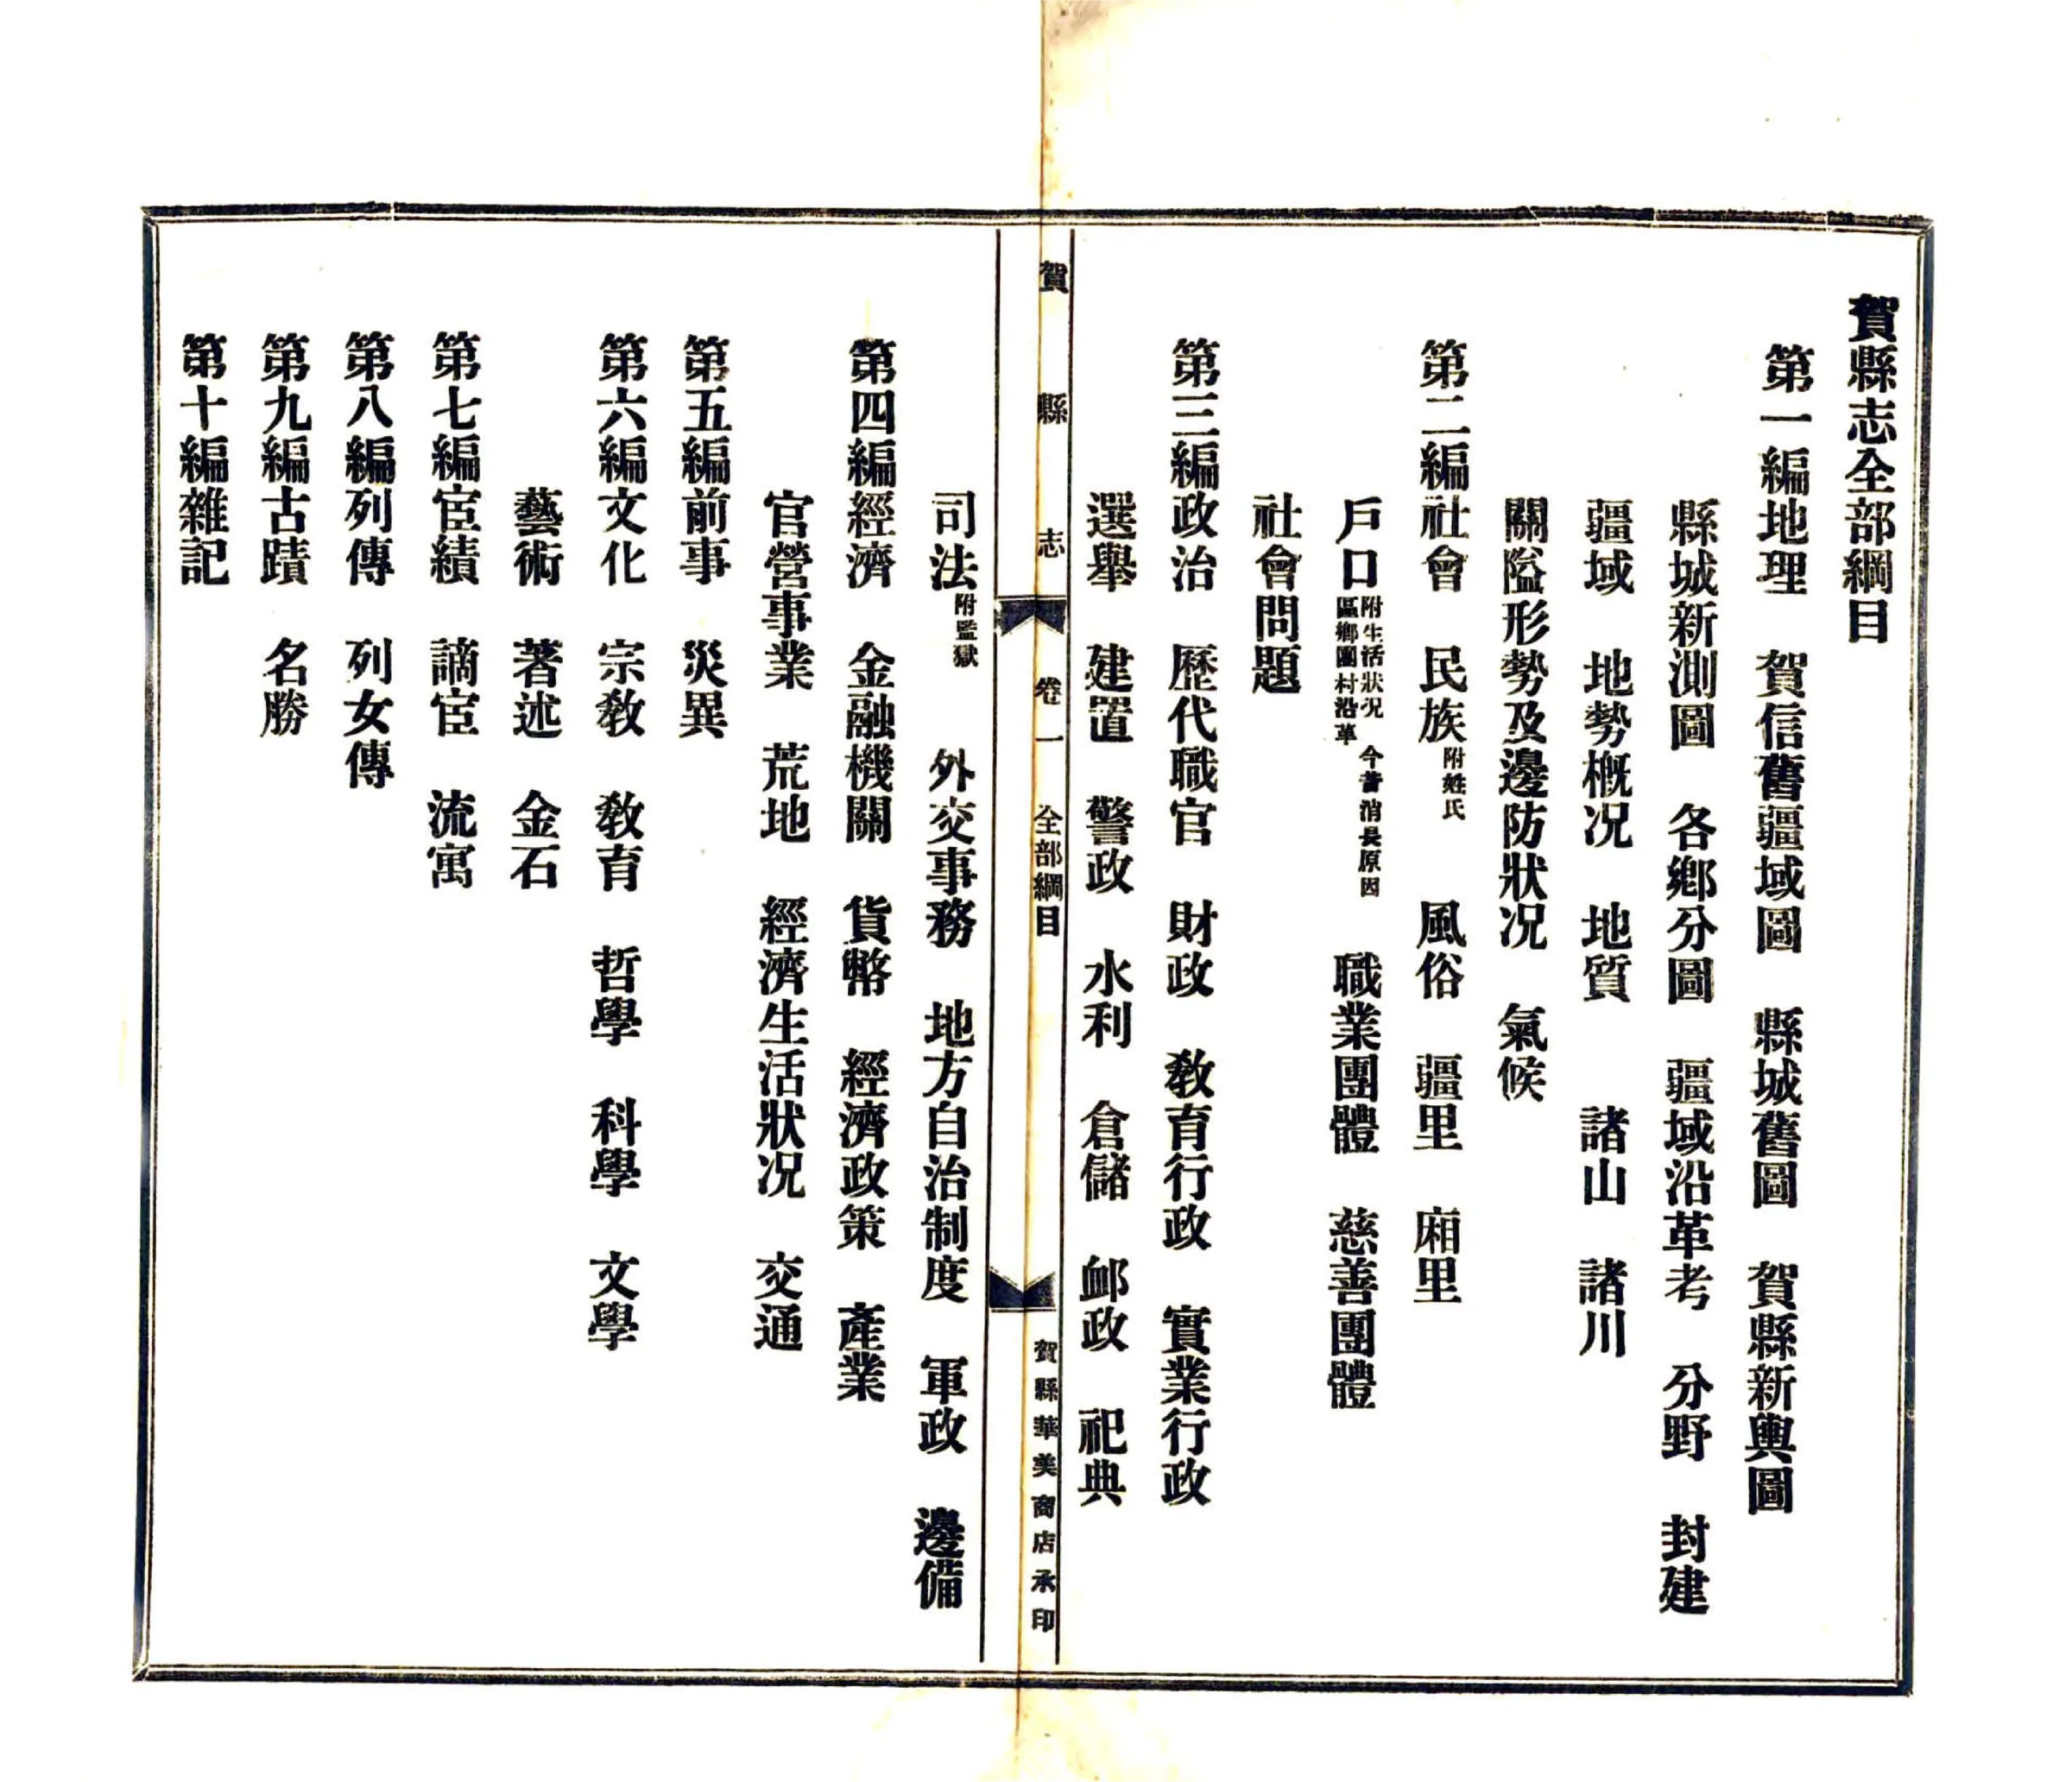 賀縣志全部綱目
第一編地理　賀信舊疆域圖　縣城舊圖　賀縣新輿圖
縣城新測圖　各鄉分圖　疆域沿革考　分野　封建
疆域　地勢概况　地質　諸山　諸川
關隘形勢及邊防狀况　氣候
第二編社會　民族附姓氏　風俗　疆里　廂里
戶口附生活狀况　今昔消長原因區鄉團村沿革　職業團體　慈善團體
社會問題
第三編政治　歷代職官　財政　敎育行政　實業行政
選舉　建置　警政　水利　倉儲　卹政　祀典
賀縣志　卷一　全部綱目　賀縣華美商店承印
司法附監獄　外交事務　地方自治制度　軍政　邊備
第四編經濟　金融機關　貨幣　經濟政策　產業
官營事業　荒地　經濟生活狀况　交通
第五編前事　災異
第六編文化　宗敎　敎育　哲學　科學　文學
藝術　著述　金石
第七編宦績　謫宦　流寓
第八編列傳　列女傳
第九編古蹟　名勝
第十編雜記